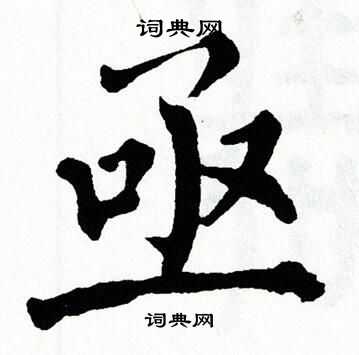 词典网
亟
词典网